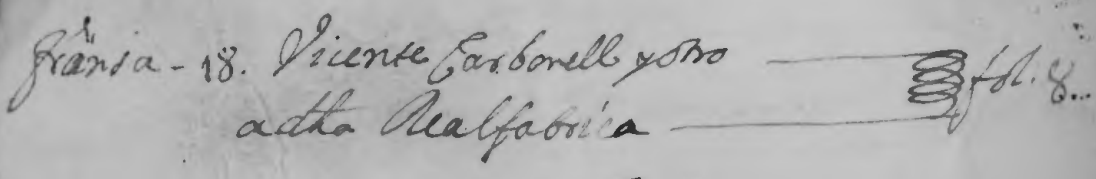 fransa - 18. Vicente Carbonell y otro fol. 8..
a dha Real fabrica